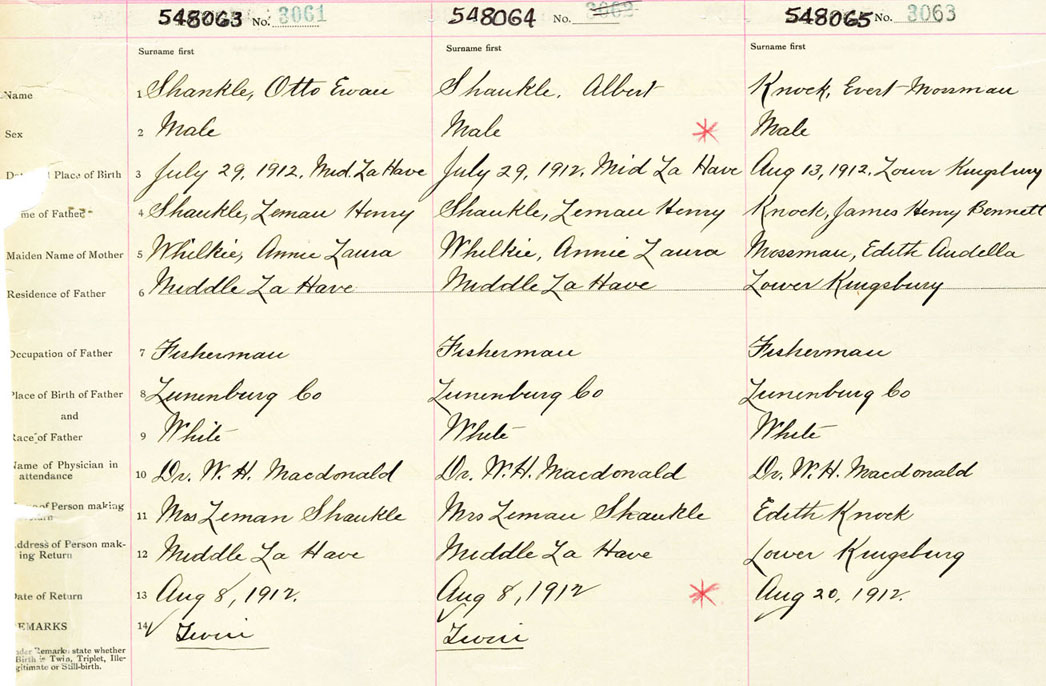 548063 No. 3061 548064 No. 3062 548065 No. 3063
Surname first Surname first Surname first
Name 1 Shankle, Otto Ewan Shankle, Albert Knock, Evert Mossman
Sex 2 Male Male Male
Place of Birth 3 July 29, 1912, Mid. La Have July 29, 1912, Mid La Have Aug 13, 1912, Lower Kingsbury
me of Father 4 Shankle, Leman Henry Shankle, Leman Henry Knock, James Henry Bennett
Maiden Name of Mother 5 Whilkie, Annie Laura Whilkie, Annie Laura Mossman, Edith Audella
Residence of Father 6 Middle La Have Middle La Have Lower Kingsbury
Occupation of Father 7 Fisherman Fisherman Fisherman
Place of Birth of Father 8 Lunenburg Co Lunenburg Co Lunenburg Co
and
Race of Father 9 White White White
Name of Physician in
attendance 10 Dr. W. H. Macdonald Dr. W. H. Macdonald Dr. W. H. Macdonald
of Person making
11 Mrs Leman Shankle Mrs Leman Shankle Edith Knock
Address of Person mak-
ing Return 12 Middle La Have Middle La Have Lower Kingsburg
Date of Return 13 Aug 8, 1912. Aug 8, 1912 Aug 20, 1912.
REMARKS 14 Twin Twin
Under Remarks state whether
Birth is Twin, Triplet, Ille-
gitimate or Still-birth.